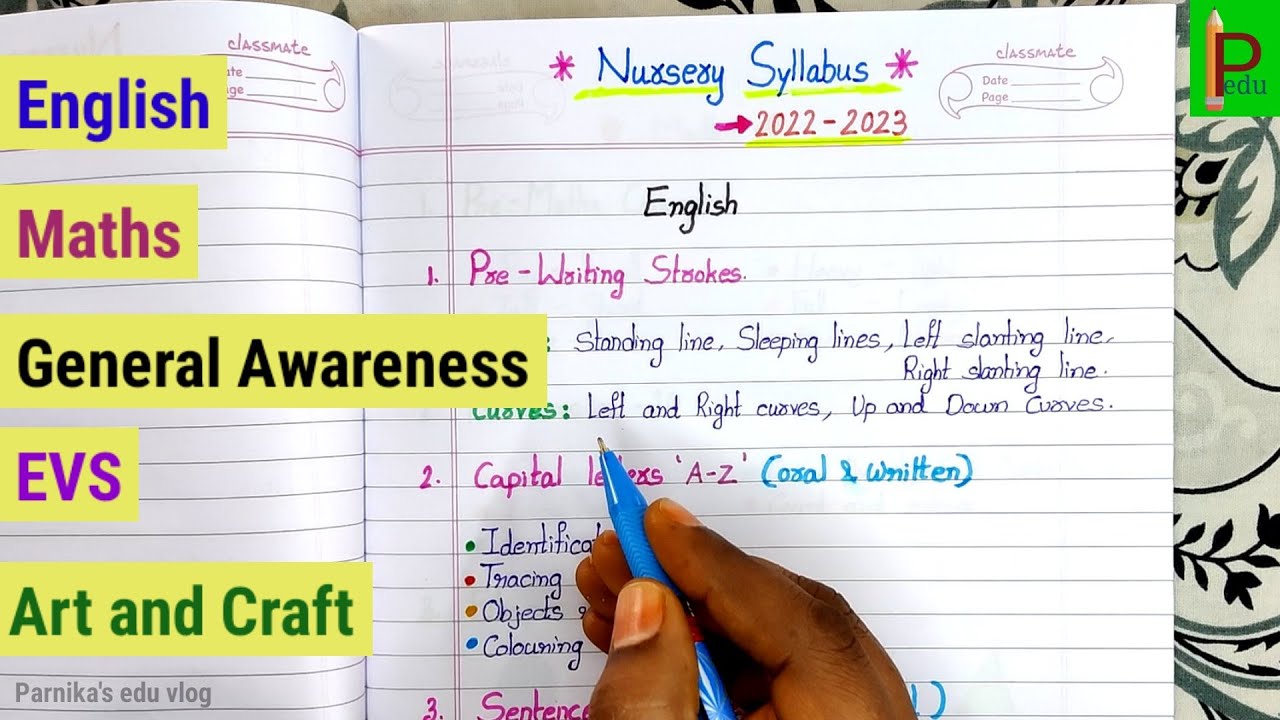 English
Maths
General Awareness
EVS
Art and Craft
Parnika's edu vlog
classmate
classmate
Date
Page
P
edu
* Nursery Syllabus *
→ 2022-2023
English
1. Pre-Writing Strokes.
: Standing line, Sleeping lines, Left slanting line,
Right slanting line.
Curves: Left and Right curves, Up and Down Curves.
2. Capital letters 'A-Z' (oral & written)
• Identificat
• Tracing
• Objects
• Colouring
3. Sentence